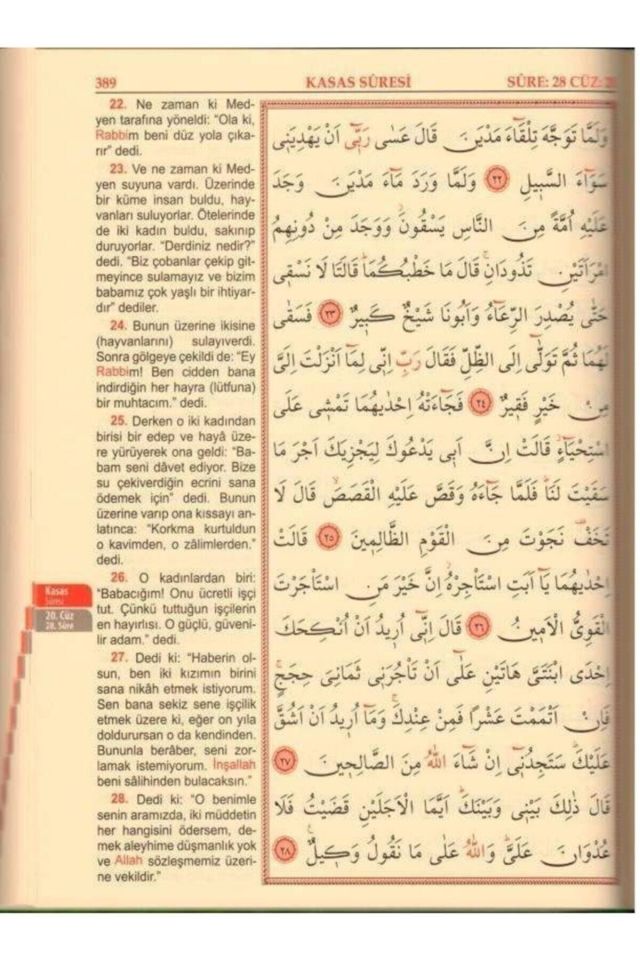 389
KASAS SÛRESİ
SÛRE: 28 CÜZ: 20
22. Ne zaman ki Med-
yen tarafına yöneldi: “Ola ki,
Rabbim beni düz yola çıka-
rır” dedi.
23. Ve ne zaman ki Med-
yen suyuna vardı. Üzerinde
bir küme insan buldu, hay-
vanları suluyorlar. Ötelerinde
de iki kadın buldu, sakınıp
duruyorlar. “Derdiniz nedir?”
dedi. “Biz çobanlar çekip git-
meyince sulamayız ve bizim
babamız çok yaşlı bir ihtiyar-
dır” dediler.
24. Bunun üzerine ikisine
(hayvanlarını) sulayıverdi.
Sonra gölgeye çekildi de: “Ey
Rabbim! Ben cidden bana
indirdiğin her hayra (lütfuna)
bir muhtacım.” dedi.
25. Derken o iki kadından
birisi bir edep ve hayâ üze-
re yürüyerek ona geldi: “Ba-
bam seni dâvet ediyor. Bize
su çekiverdiğin ecrini sana
ödemek için” dedi. Bunun
üzerine varıp ona kıssayı an-
latınca: “Korkma kurtuldun
o kavimden, o zâlimlerden.”
dedi.
26. O kadınlardan biri:
“Babacığım! Onu ücretli işçi
tut. Çünkü tuttuğun işçilerin
en hayırlısı. O güçlü, güveni-
lir adam.” dedi.
27. Dedi ki: “Haberin ol-
sun, ben iki kızımın birini
sana nikâh etmek istiyorum.
Sen bana sekiz sene işçilik
etmek üzere ki, eğer on yıla
doldurursan o da kendinden.
Bununla berâber, seni zor-
lamak istemiyorum. İnşallah
beni sâlihinden bulacaksın.”
28. Dedi ki: “O benimle
senin aramızda, iki müddetin
her hangisini ödersem, de-
mek aleyhime düşmanlık yok
ve Allah sözleşmemiz üzeri-
ne vekildir.”
Kasas
Sûresi
20. Cüz
28. Sûre
وَلَمَّا تَوَجَّهَ تِلْقَٓاءَ مَدْيَنَ قَالَ عَسٰى رَبّ۪ٓي اَنْ يَهْدِيَن۪ي
سَوَٓاءَ السَّب۪يلِ ﴿٢٢﴾ وَلَمَّا وَرَدَ مَٓاءَ مَدْيَنَ وَجَدَ
عَلَيْهِ اُمَّةً مِنَ النَّاسِ يَسْقُونَۘ وَوَجَدَ مِنْ دُونِهِمُ
امْرَاَتَيْنِ تَذُودَانِۚ قَالَ مَا خَطْبُكُمَاۜ قَالَتَا لَا نَسْق۪ي
حَتّٰى يُصْدِرَ الرِّعَٓاءُ وَاَبُونَا شَيْخٌ كَب۪يرٌ ﴿٢٣﴾ فَسَقٰى
لَهُمَا ثُمَّ تَوَلّٰٓى اِلَى الظِّلِّ فَقَالَ رَبِّ اِنّ۪ي لِمَٓا اَنْزَلْتَ اِلَيَّ
مِنْ خَيْرٍ فَق۪يرٌ ﴿٢٤﴾ فَجَٓاءَتْهُ اِحْدٰيهُمَا تَمْش۪ي عَلَى
اسْتِحْيَٓاءٍۘ قَالَتْ اِنَّ اَب۪ي يَدْعُوكَ لِيَجْزِيَكَ اَجْرَ مَا
سَقَيْتَ لَنَاۜ فَلَمَّا جَٓاءَهُ وَقَصَّ عَلَيْهِ الْقَصَصَۙ قَالَ لَا
تَخَفْ۠ نَجَوْتَ مِنَ الْقَوْمِ الظَّالِم۪ينَ ﴿٢٥﴾ قَالَتْ
اِحْدٰيهُمَا يَٓا اَبَتِ اسْتَأْجِرْهُۘ اِنَّ خَيْرَ مَنِ اسْتَأْجَرْتَ
الْقَوِيُّ الْاَم۪ينُ ﴿٢٦﴾ قَالَ اِنّ۪ٓي اُر۪يدُ اَنْ اُنْكِحَكَ
اِحْدَى ابْنَتَيَّ هَاتَيْنِ عَلٰٓى اَنْ تَأْجُرَن۪ي ثَمَانِيَ حِجَجٍۚ
فَاِنْ اَتْمَمْتَ عَشْرًا فَمِنْ عِنْدِكَۚ وَمَٓا اُر۪يدُ اَنْ اَشُقَّ
عَلَيْكَۜ سَتَجِدُن۪ٓي اِنْ شَٓاءَ اللّٰهُ مِنَ الصَّالِح۪ينَ ﴿٢٧﴾
قَالَ ذٰلِكَ بَيْن۪ي وَبَيْنَكَۜ اَيَّمَا الْاَجَلَيْنِ قَضَيْتُ فَلَا
عُدْوَانَ عَلَيَّۜ وَاللّٰهُ عَلٰى مَا نَقُولُ وَك۪يلٌ۟ ﴿٢٨﴾